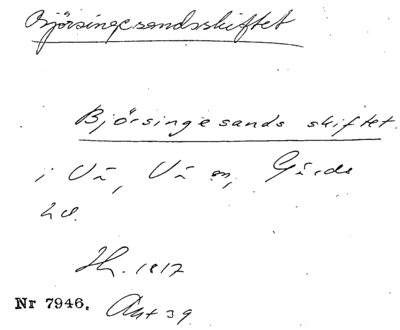 Björsingesandsskiftet
Björsingesands skiftet.
i Vä, Vä sn, Gärds
hd.
Sh. 1817
Nr 7946. Akt 39